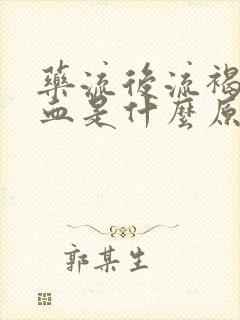 藥流後流褐
血是什麼原
郭某生